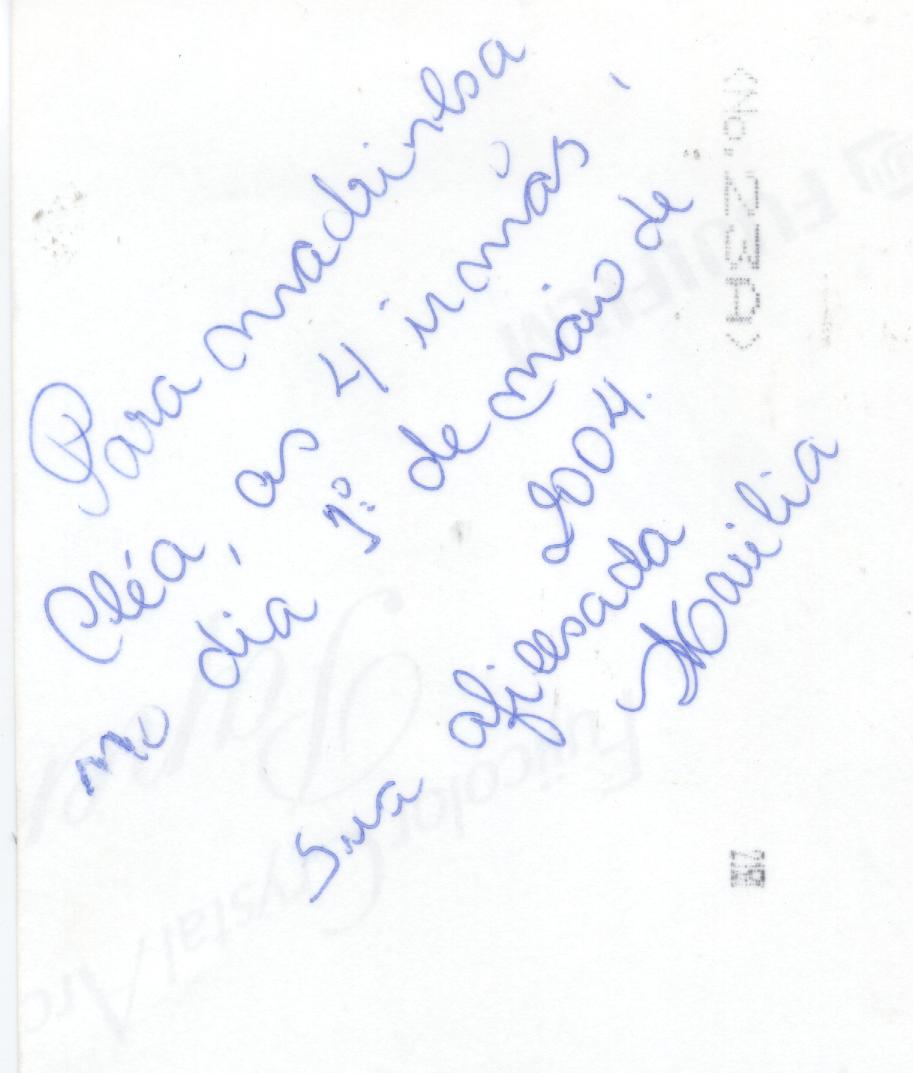 Para madrinha
Cléa, as 4 irmãs,
no dia 1º de maio de
2004.
Sua afilhada
Marilia
FUJIFILM
Fujicolor Crystal Arc
Paper